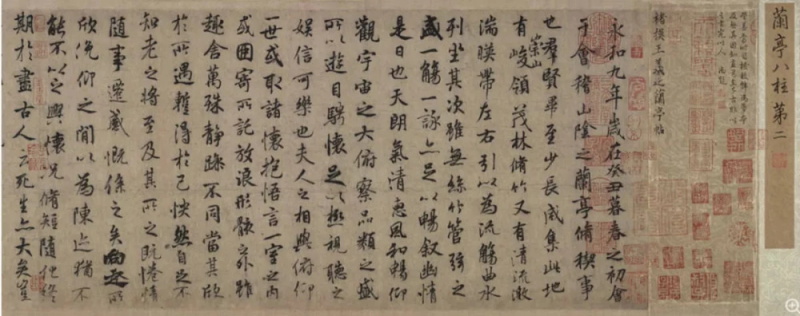 蘭亭八柱第二
褚摹王羲之蘭亭帖
永和九年歲在癸丑暮春之初會
于會稽山陰之蘭亭脩稧事
也羣賢畢至少長咸集此地
有崇山峻領茂林脩竹又有清流激
湍暎帶左右引以為流觴曲水
列坐其次雖無絲竹管弦之
盛一觴一詠亦足以暢敘幽情
是日也天朗氣清惠風和暢仰
觀宇宙之大俯察品類之盛
所以遊目騁懷足以極視聽之
娛信可樂也夫人之相與俯仰
一世或取諸懷抱悟言一室之內
或因寄所託放浪形骸之外雖
趣舍萬殊靜躁不同當其欣
於所遇蹔得於己怏然自足不
知老之將至及其所之既惓情
隨事遷感慨係之矣向之所
欣俛仰之間以為陳迹猶不
能不以之興懷況脩短隨化終
期於盡古人云死生亦大矣豈